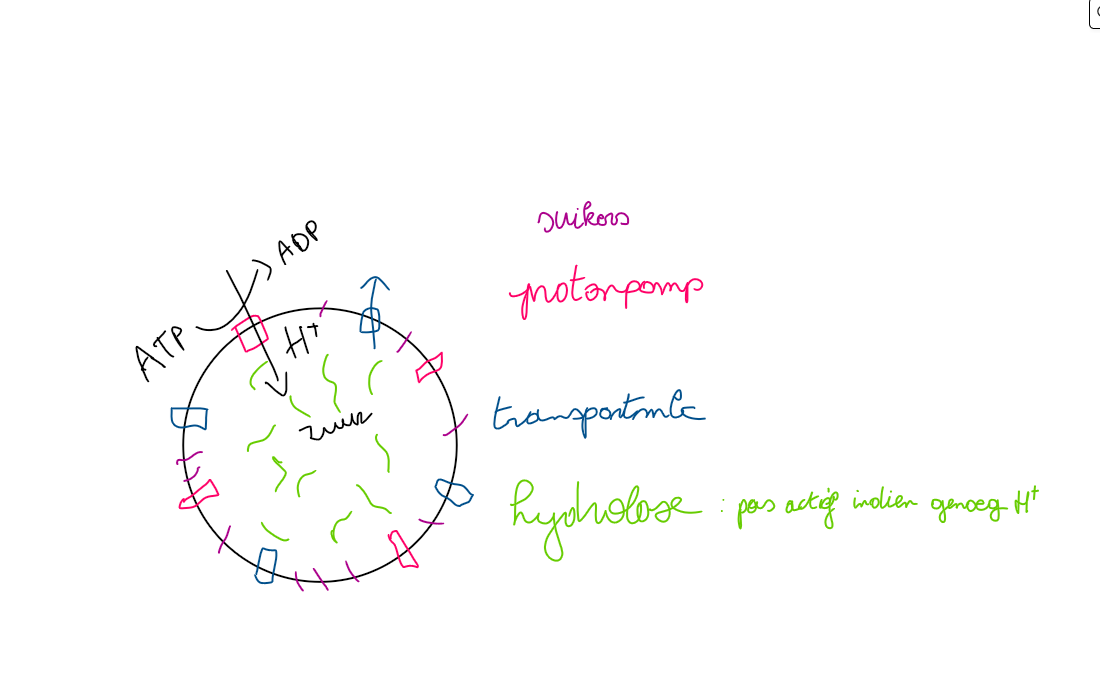 suikers
ADP
protonpomp
ATP
H+
zuur
transportmlc
hydrolase : pas actief indien genoeg H+